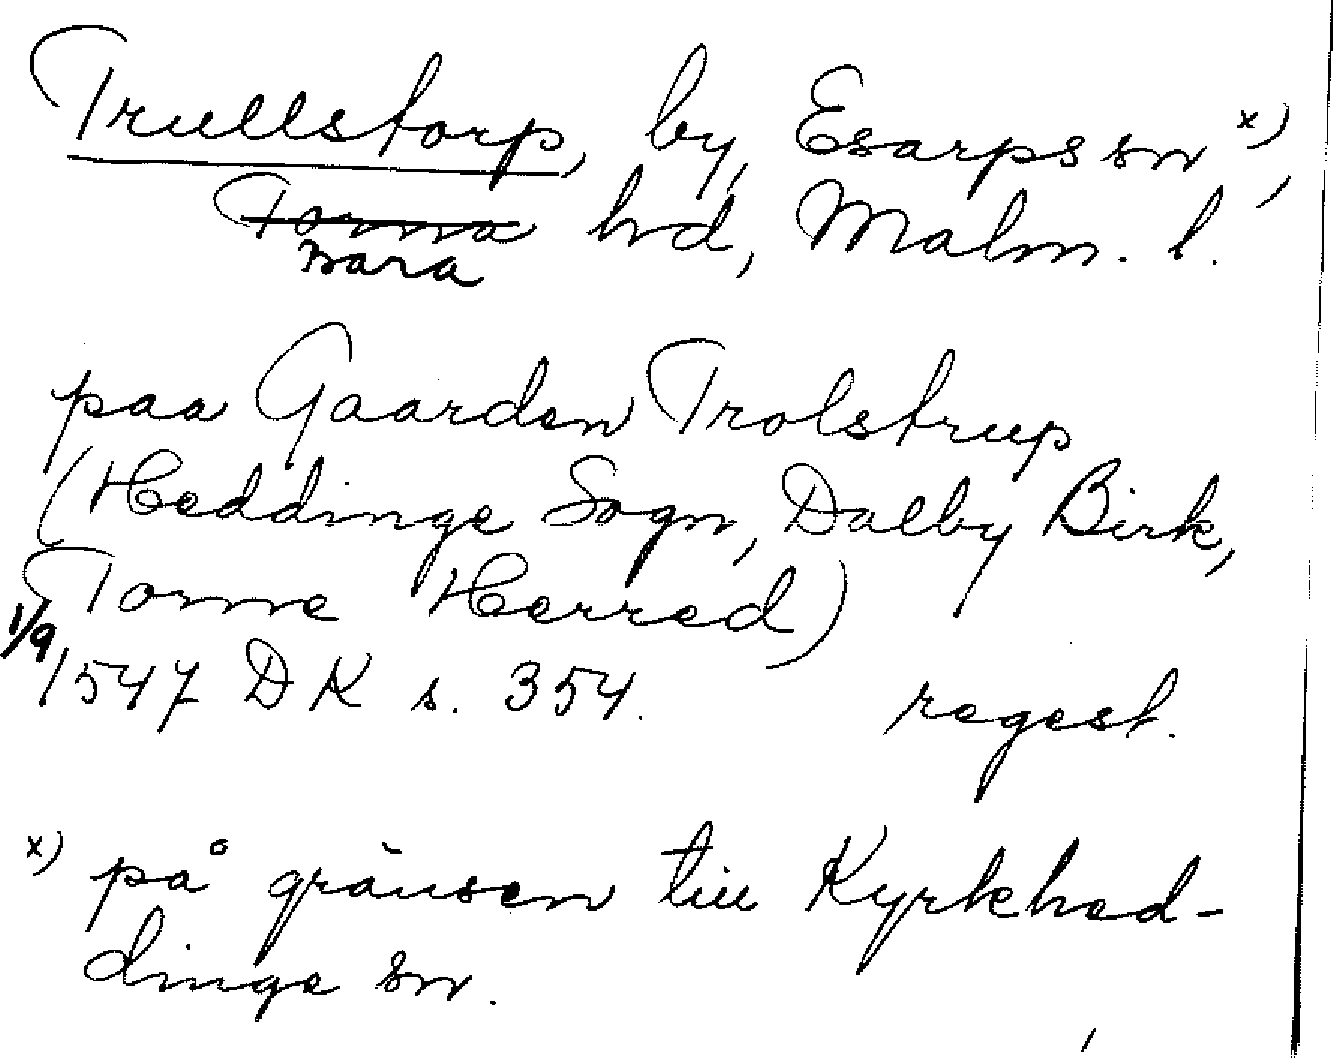 Trullstorp, by, Esarps sn x),
Torna hd, Malm. l.
Bara
paa Gaarden Trolstrup
(Heddinge Sogn, Dalby Birk,
Torne Herred)
1/9
1547 DK s. 354. regest.
x) på gränsen till Kyrkhed-
dinge sn.